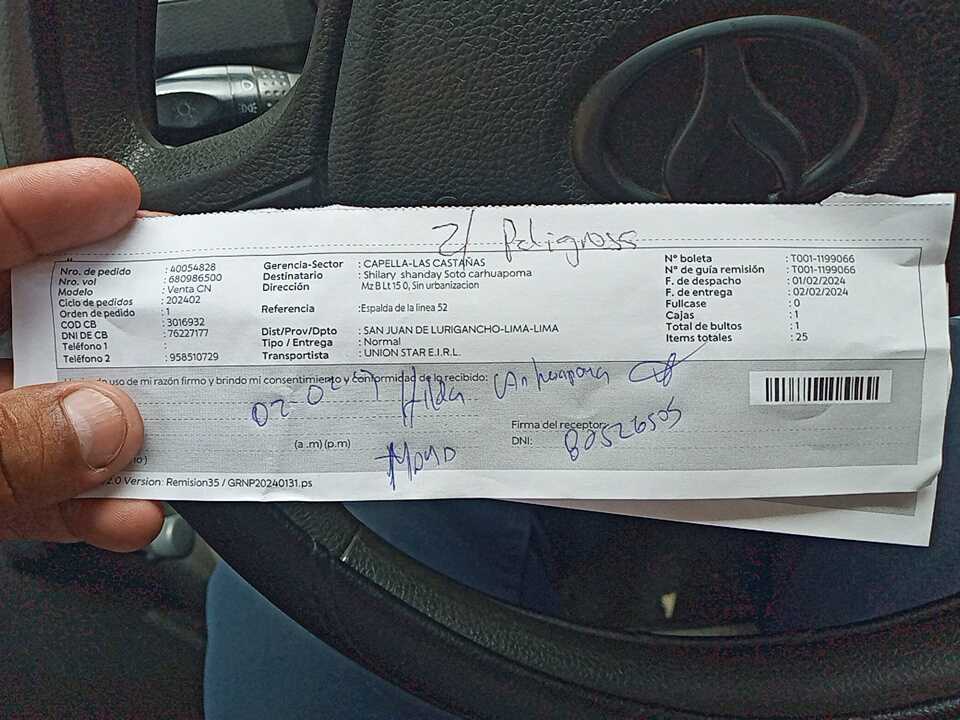 Z/ Peligrosa
Nro. de pedido : 40054828
Nro. vol : 680986500
Modelo : Venta CN
Ciclo de pedidos : 202402
Orden de pedido : 1
COD CB : 3016932
DNI DE CB : 76227177
Teléfono 1 :
Teléfono 2 : 958510729
Gerencia-Sector : CAPELLA-LAS CASTAÑAS
Destinatario : Shilary shanday Soto carhuapoma
Dirección Mz B Lt 15 0, Sin urbanizacion
Referencia :Espalda de la linea 52
Dist/Prov/Dpto : SAN JUAN DE LURIGANCHO-LIMA-LIMA
Tipo / Entrega : Normal
Transportista : UNION STAR E.I.R.L.
N° boleta : T001-1199066
N° de guía remisión : T001-1199066
F. de despacho : 01/02/2024
F. de entrega : 02/02/2024
Fullcase : 0
Cajas : 1
Total de bultos : 1
Items totales : 25
uso de mi razón firmo y brindo mi consentimiento y conformidad de lo recibido:
Hilda
Firma del receptor:
(a .m) (p.m)
DNI: 80526505
2.0 Version: Remision35 / GRNP20240131.ps